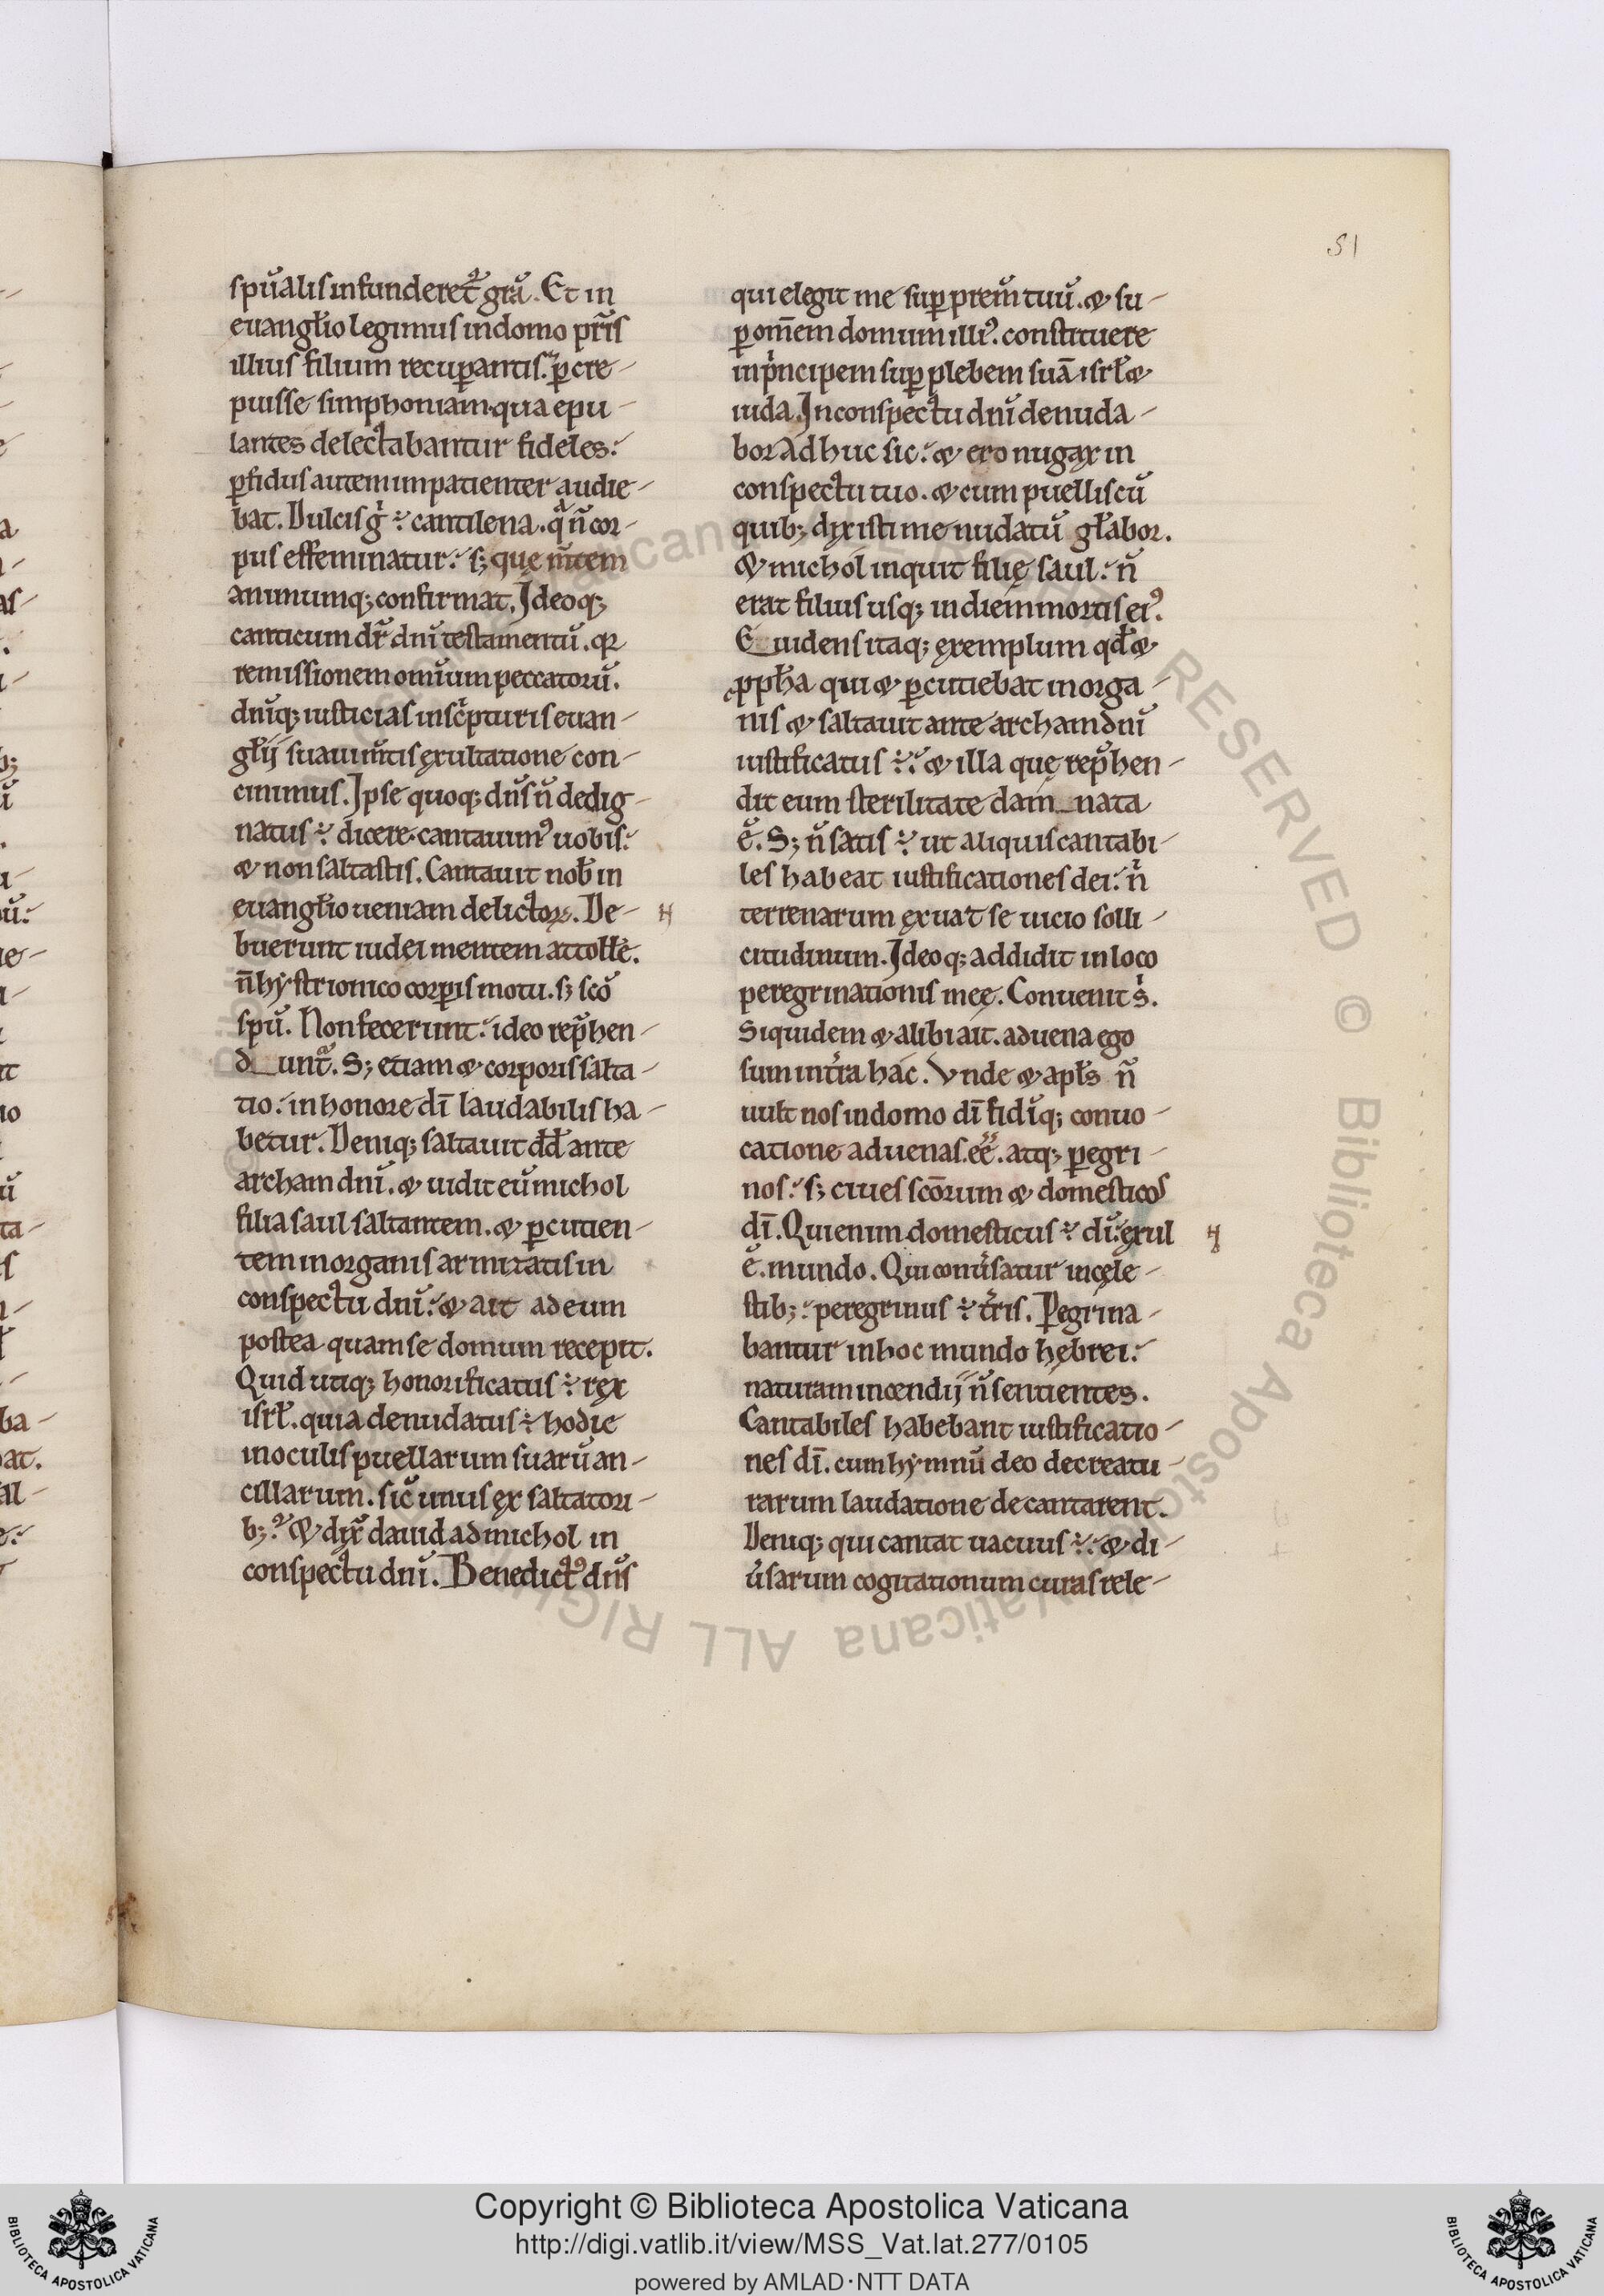 51
spũalis infunderet᷑ gr̃a. Et in
euangl̃io legimus in domo pr̃is
illius filium recuꝑantis. ꝑcre-
puisse simphoniam. qua epu-
lantes delectabantur fideles.
ꝑfidus autem impatienter audie-
bat. Dulcis gͥ ÷ cantilena. qͣ ñ cor-
pus effeminatur. sꝫ quę m̃tem
animumqꝫ confirmat. Ideoqꝫ
canticum dr̃ dñi testamentũ. qꝛ
remissionem omĩum peccatorũ.
dñiqꝫ iusticias in scͥpturis euan-
gl̃ij suaui m̃tis ęxultatione con-
cinimus. Ipse quoqꝫ dñs ñ dedig-
natus ÷ dicere. cantauimꝰ uobis.
& non saltastis. Cantauit nob̃ in
ęuangl̃io ueniam delictoꝝ. De-
buerunt iudęi mentem attolle᷑.
ñ hystrionico corꝑis motu. sꝫ sc̃o
spũ. Non fecerunt. ideo rep̃hen-
d__unt᷑. Sꝫ etiam & corporis salta-
tio. in honore dĩ laudabilis ha-
betur. Deniqꝫ saltauit dd̃ ante
archam dñi. & uidit eũ michol
filia saul saltantem. & ꝑcutien-
tem in organis armitatis in
conspectu dñi. & ait ad eum
postea quam se domum recepit.
Quid utiqꝫ honorificatus ÷ ręx
isrł. quia denudatus ÷ hodie
in oculis puellarum suarũ an-
cillarum. sic̃ unus ęx saltatori-
bꝫ. & dix̃ dauid ad michol in
conspectu dñi. Benedictꝰ dñs
qui elegit me suꝑ prem̃ tuũ. & su-
ꝑ om̃em domum illiꝰ. constituere
in pͥncipem suꝑ plebem suã isrł &
iuda. In conspectu dñi denuda-
bor adhuc sic. & ero nugax in
conspectu tuo. & cum puellis cũ
quibꝫ dixisti me nudatũ gl̃abor.
& michol inquit filię saul. ñ
erat filius usqꝫ in diem mortis eiꝰ.
E_uidens itaqꝫ ęxemplum qđ &
ꝓph̃a qui & ꝑcutiebat in orga-
nis & saltauit ante archam dñi
iustificatus ÷. & illa quę rep̃hen-
dit eum sterilitate dam__nata
ẽ. Sꝫ ñ satis ÷ ut aliquis cantabi-
les habeat iustificationes dei. nͥ
terrenarum ęxuat se uicio solli-
citudinum. Ideoqꝫ addidit in loco
peregrinationis meę. Conuenit sͥ.
Siquidem & alibi ait. aduena ego
sum in tr̃ra hac. Vnde & apl̃s ñ
uult nos in domo dĩ fidiqꝫ conuo-
catione aduenas. ee᷑. atqꝫ ꝑegri-
nos. sꝫ ciues sc̃orum & domesticos
dĩ. Qui enim domesticus ÷ dĩ. ęxul
ẽ. mundo. Qui conũsatur in cęle-
stibꝫ. peregrinus ÷ tr̃ris. Ꝑegrina-
bantur in hoc mundo hębrei.
naturam incendij ñ sentientes.
Cantabiles habebant iustificatio-
nes dĩ. cum hymnũ deo de creatu-
rarum laudatione decantarent.
Deniqꝫ qui cantat uacuus ÷. & di-
ũsarum cogitationum curas rele-
© Biblioteca Apostolica Vaticana ALL RIGHTS RESERVED
BIBLIOTECA APOSTOLICA VATICANA
Copyright © Biblioteca Apostolica Vaticana
http://digi.vatlib.it/view/MSS_Vat.lat.277/0105
powered by AMLAD·NTT DATA
BIBLIOTECA APOSTOLICA VATICANA